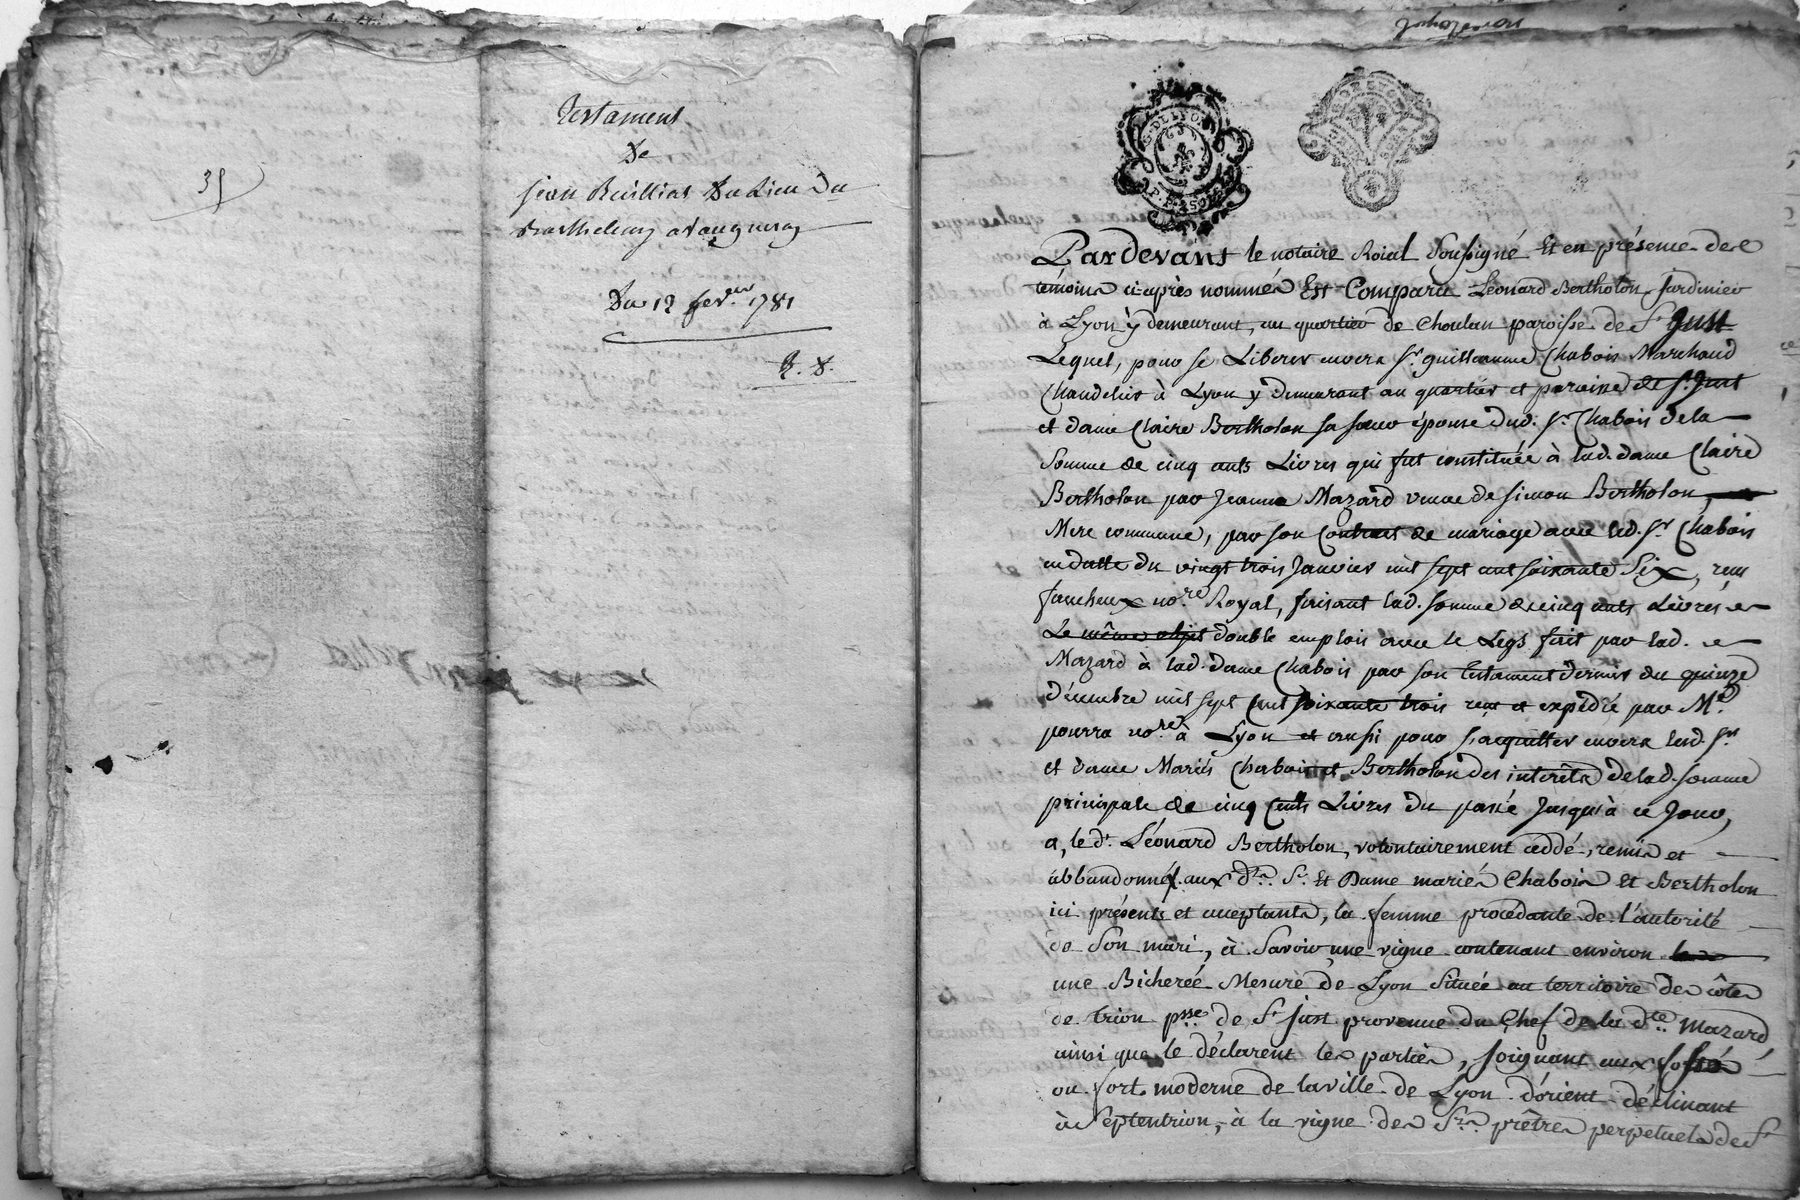 35
Testament
de
jean Buillias du Lieu du
Barthelemy a Vaugneray
Du 12 fev.er 1781
G. DE LYON
Pardevant le notaire Roial Soussigné Et en présence de
témoins ci-après nommés Est Comparu Léonard Bertholon Jardinier
à Lyon y demeurant, au quartier de Choulan paroisse de St Just
Lequel, pour se Liberer envers Sr. guillaume Chabois Marchand
Chandelier à Lyon y demeurant au quartier et paroisse de St. Just
et dame Claire Bertholon sa sœur épouse dud. Sr. Chabois de la
Somme de cinq cents Livres qui fut constituée à lad. dame Claire
Bertholon par Jeanne Mazard veuve de simon Bertholon,
Mere commune, par son Contrat de mariage avec led. Sr Chabois
en datte du vingt trois Janvier mil sept cent soixante Six, reçu
Faucheux no.re Royal, faisant lad. somme de cinq cents Livres
Le même objet double emploi avec le Legs fait par lad.
Mazard à lad. dame Chabois par son testament dernier du quinze
décembre mil sept Cent soixante trois reçu et expédié par Me
pourra no.re à Lyon et aussi pour s'acquitter envers lesd. Sr
et dame Mariés Chabois et Bertholon des intérêts de lad. somme
principale de cinq Cents Livres du passé Jusqu'à ce Jour,
a, le d. Léonard Bertholon, volontairement cèddé, remis et
abbandonné aux dts. Sr. Et Dame mariés Chabois Et Bertholon
ici présents et acceptants, la femme procédante de l'autorité
de Son mari, à Savoir une vigne contenant environ
une Bicherée Mesure de Lyon Située au territoire des côtes
de trion psse de St Just provenue du Chef de la dte Mazard
ainsi que le déclarent les parties, joignant aux fossés
ou fort moderne de la ville de Lyon d'orient déclinant
à Septentrion, à la vigne des Srs prêtres perpetuels de St